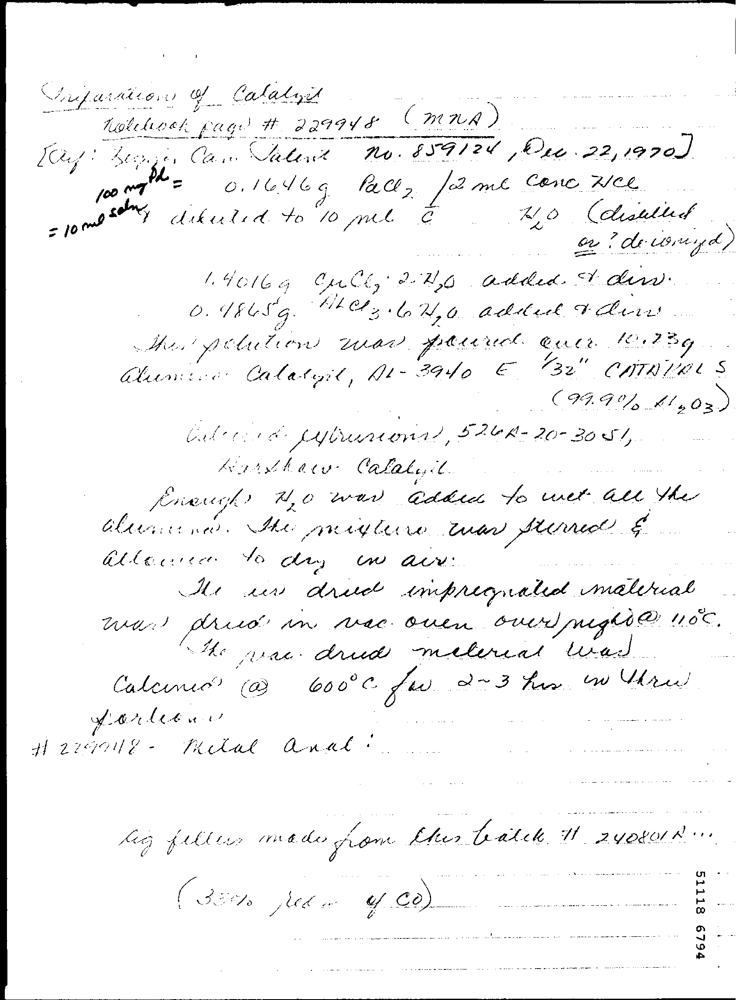 Preparation of Catalyst
Notebook page # 229948 (MNA)
[Ref: Can. Patent No. 859124, Dec. 22, 1970]
100 mg Pd = 0.1646g PdCl2 / 2 ml conc HCl
= 10 ml soln, & diluted to 10 ml c̄ H2O (distilled
or? deionized)
1.4016g CuCl2·2H2O added & diss.
0.4865g. AlCl3·6H2O added & diss
This solution was poured over 10.73g
Alumina Catalyst, AL-3940 E 1/32" CATAPAL S
(99.9% Al2O3)
Calcined extrusions, 526A-20-30 51,
Harshaw Catalyst.
Enough H2O was added to wet all the
alumina. The mixture was stirred &
allowed to dry in air.
The air dried impregnated material
was dried in vac oven over night @ 110°C.
The vac. dried material was
Calcined @ 600°C for 2-3 hrs in three
portions
# 229948 - Metal Anal:
Cig filters made from this batch # 240801A...
(33% red'n of CO)
51118 6794